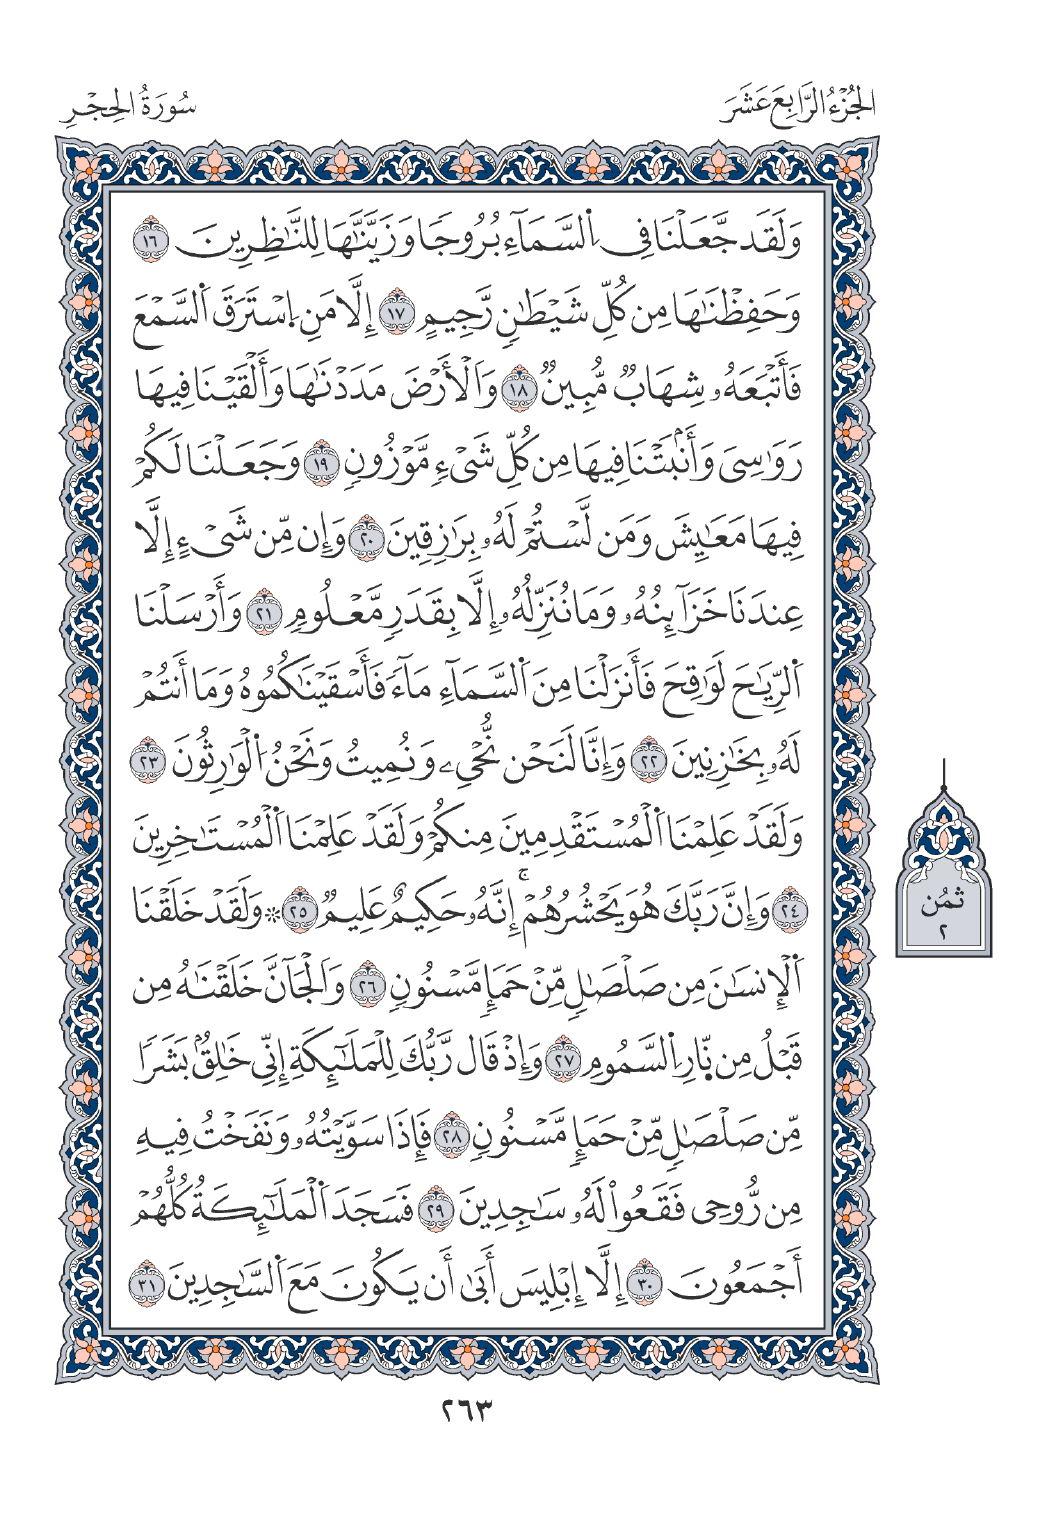 الجُزْءُ الرَّابِعَ عَشَرَ
سُورَةُ الحِجْرِ
وَلَقَد جَّعَلْنَا فِى اِ۬لسَّمَآءِ بُرُوجًا وَزَيَّنَّٰهَا لِلنَّٰظِرِينَ ١٦
وَحَفِظْنَٰهَا مِن كُلِّ شَيْطَٰنٍ رَّجِيمٍ ١٧ إِلَّا مَنِ اِ۪سْتَرَقَ اَ۬لسَّمْعَ
فَأَتْبَعَهُۥ شِهَابٌ مُّبِينٌ ١٨ وَاَلْأَرْضَ مَدَدْنَٰهَا وَأَلْقَيْنَا فِيهَا
رَوَٰسِىَ وَأَنۢبَتْنَا فِيهَا مِن كُلِّ شَىْءٍ مَّوْزُونٍ ١٩ وَجَعَلْنَا لَكُمْ
فِيهَا مَعَٰيِشَ وَمَن لَّسْتُمْ لَهُۥ بِرَٰزِقِينَ ٢٠ وَإِن مِّن شَىْءٍ إِلَّا
عِندَنَا خَزَآئِنُهُۥ وَمَا نُنَزِّلُهُۥ إِلَّا بِقَدَرٍ مَّعْلُومٍ ٢١ وَأَرْسَلْنَا
اَ۬لرِّيَٰحَ لَوَٰقِحَ فَأَنزَلْنَا مِنَ اَ۬لسَّمَآءِ مَآءً فَأَسْقَيْنَٰكُمُوهُ وَمَا أَنتُمْ
لَهُۥ بِخَٰزِنِينَ ٢٢ وَإِنَّا لَنَحْن نُّحْىِۦ وَنُمِيتُ وَنَحْنُ اُ۬لْوَٰرِثُونَ ٢٣
وَلَقَدْ عَلِمْنَا اَ۬لْمُسْتَقْدِمِينَ مِنكُمْ وَلَقَدْ عَلِمْنَا اَ۬لْمُسْتَـٰخِرِينَ
٢٤ وَإِنَّ رَبَّكَ هُوَ يَحْشُرُهُمْۚ إِنَّهُۥ حَكِيمٌ عَلِيمٌ ٢٥ ۞ وَلَقَدْ خَلَقْنَا
اَ۬لْإِنسَٰنَ مِن صَلْصَٰلٍ مِّنْ حَمَإٍ مَّسْنُونٍ ٢٦ وَاَلْجَآنَّ خَلَقْنَٰهُ مِن
قَبْلُ مِن نّ۪ارِ اِ۬لسَّمُومِ ٢٧ وَإِذْ قَال رَّبُّكَ لِلْمَلَٰٓئِكَةِ إِنِّى خَٰلِقٌۢ بَشَرًا
مِّن صَلْصَٰلٍ مِّنْ حَمَإٍ مَّسْنُونٍ ٢٨ فَإِذَا سَوَّيْتُهُۥ وَنَفَخْتُ فِيهِ
مِن رُّوحِى فَقَعُواْ لَهُۥ سَٰجِدِينَ ٢٩ فَسَجَدَ اَ۬لْمَلَٰٓئِكَةُ كُلُّهُمْ
أَجْمَعُونَ ٣٠ إِلَّا إِبْلِيسَ أَبَىٰ أَن يَكُونَ مَعَ اَ۬لسَّٰجِدِينَ ٣١
ثُمُن
٢
٢٦٣